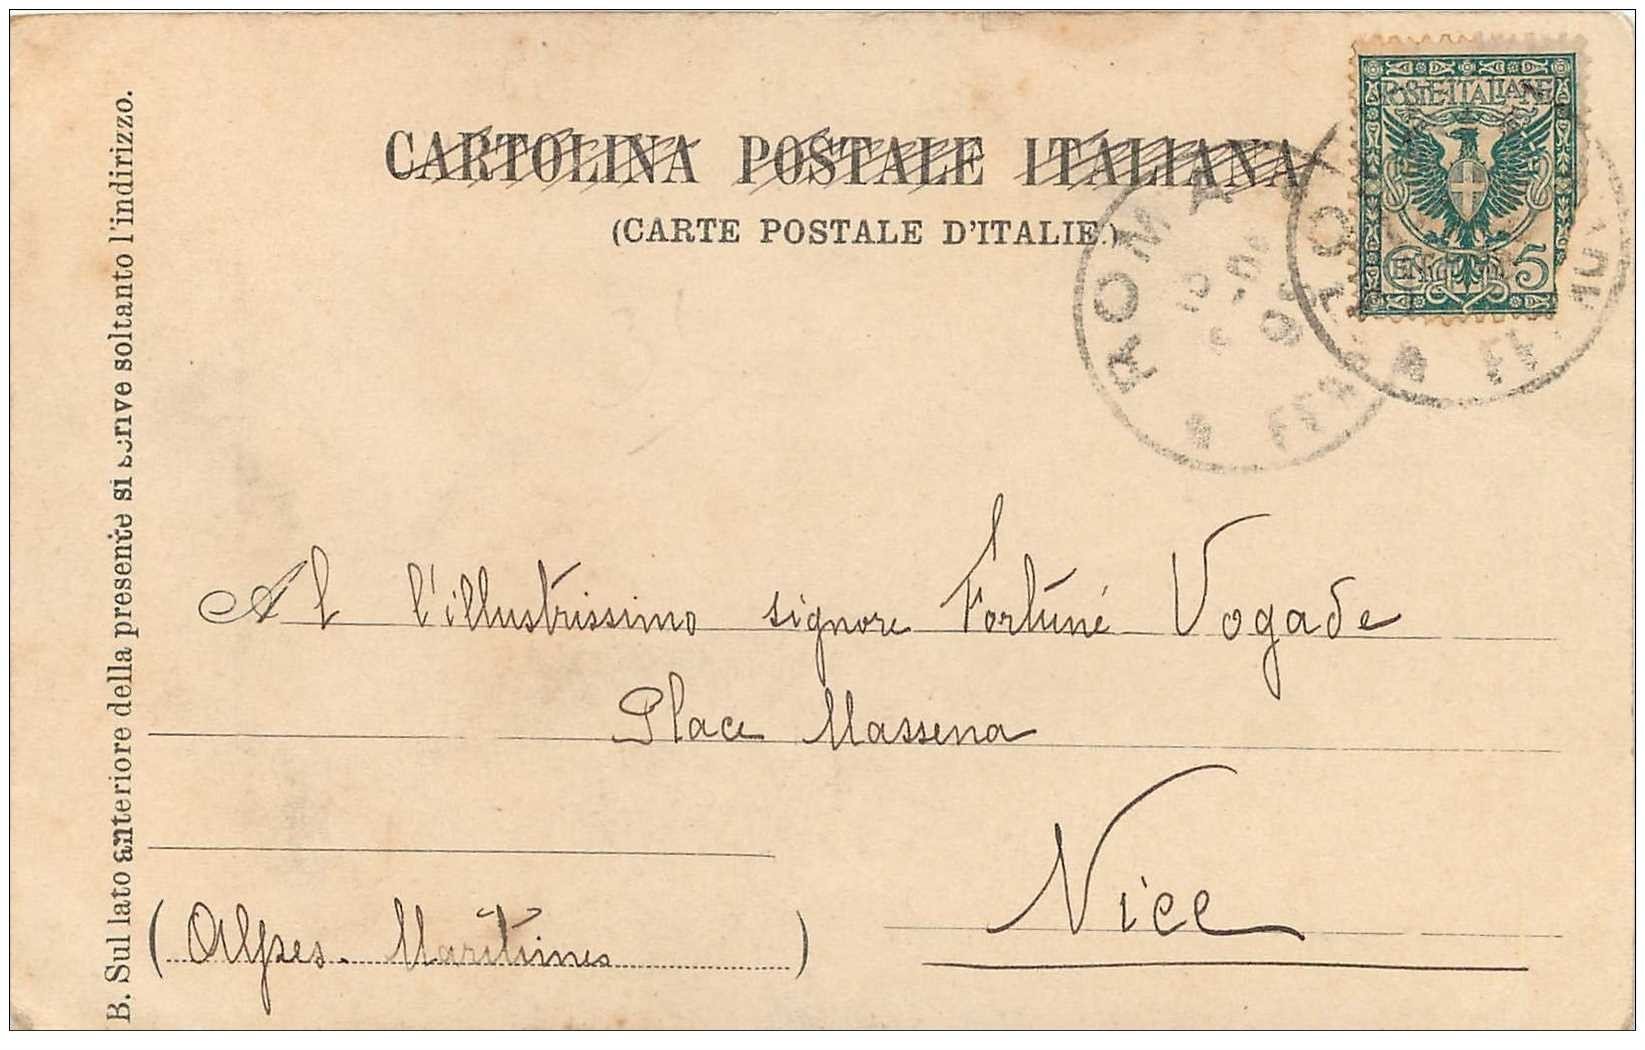 CARTOLINA POSTALE ITALIANA
(CARTE POSTALE D'ITALIE.)
POSTE·ITALIANE
CENT. 5
ROMA
ROMA
Al l'illustrissimo signore Fortuné Vogade
Place Massena
Nice
(Alpes-Maritimes)
B. Sul lato anteriore della presente si scrive soltanto l'indirizzo.